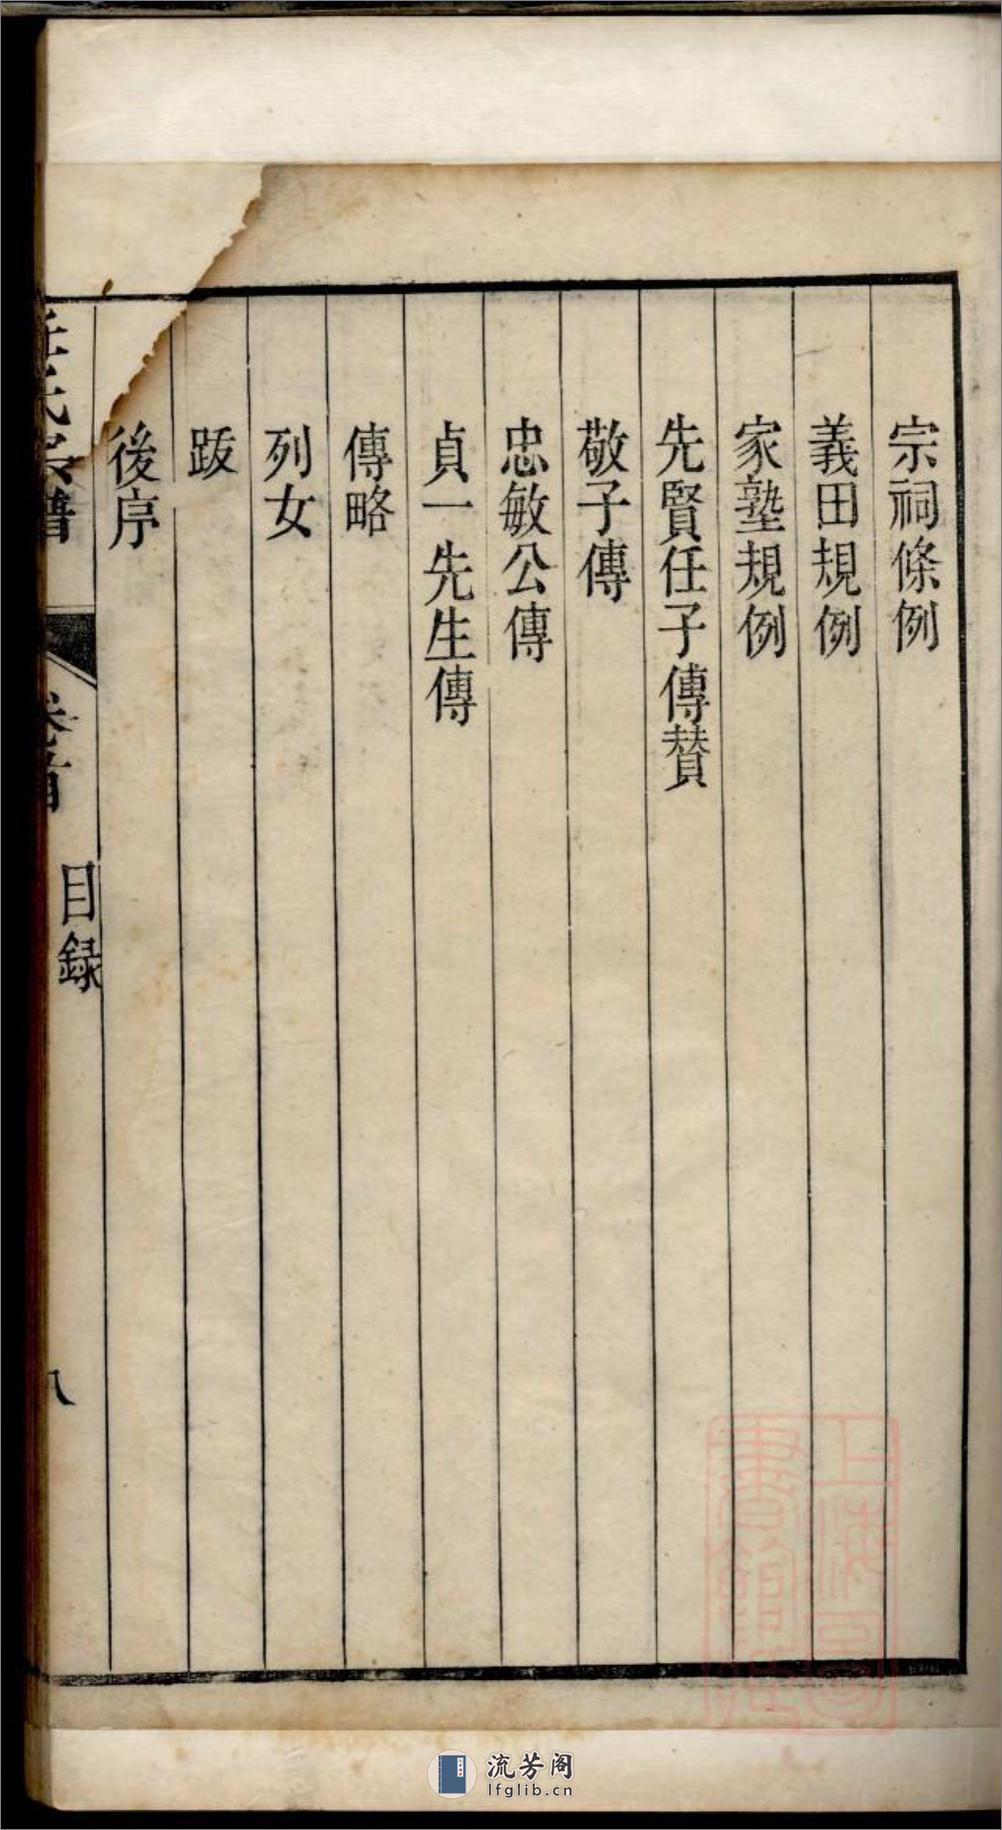 宗祠條例
義田規例
家塾規例
先賢任子傳贊
敬子傳
忠敏公傳
貞一先生傳
傳略
列女
跋
後序
任氏宗譜
卷首
目録
八
上海圖
書館藏
流芳阁
lfglib.cn